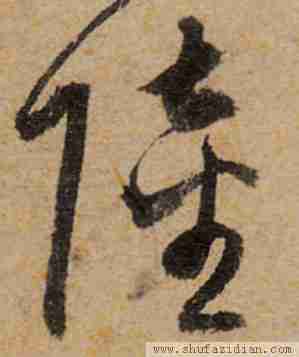 陸
www.shufazidian.com